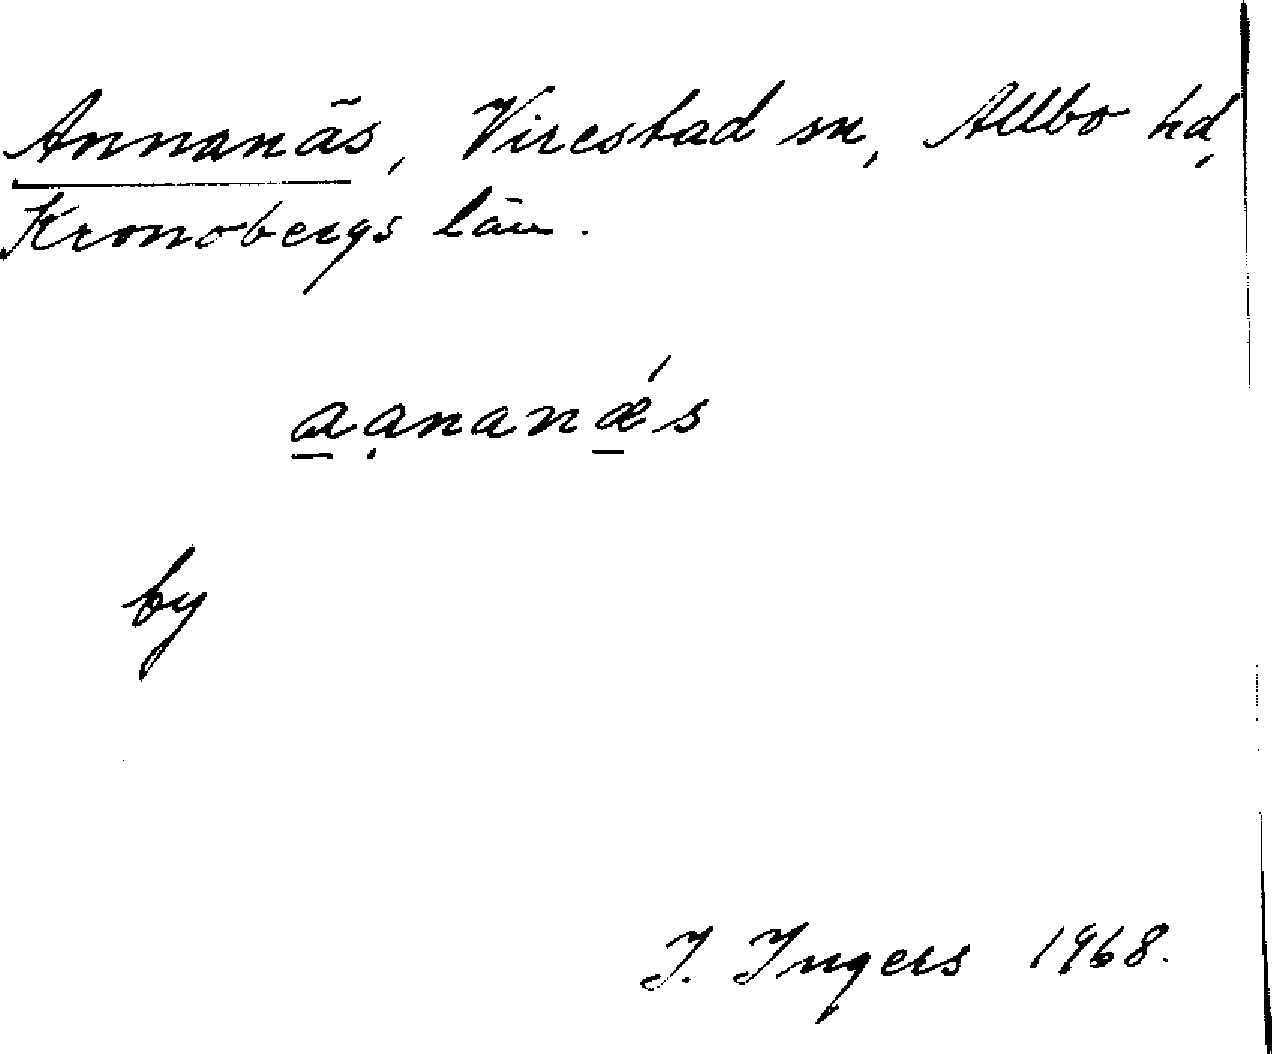 Annanäs, Virestad sn, Allbo hd,
Kronobergs län.
a̲ạnanæ̲´s
by
I. Ingers 1968.